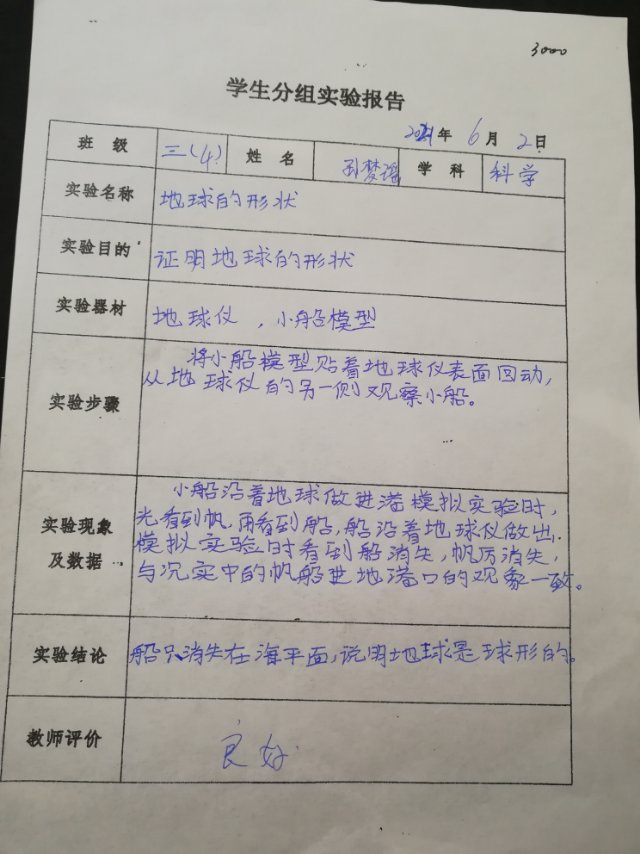 3000
学生分组实验报告
2021年 6月 2日
班 级 三(4) 姓 名 孙梦瑶 学 科 科学
实验名称 地球的形状
实验目的 证明地球的形状
实验器材 地球仪，小船模型
将小船模型贴着地球仪表面回动，
实验步骤 从地球仪的另一侧观察小船。
小船沿着地球做进港模拟实验时，
实验现象 先看到帆，再看到船，船沿着地球仪做出
及数据 模拟实验时看到船消失，帆后消失，
与况实中的帆船进地港口的观象一致。
实验结论 船只消失在海平面，说明地球是球形的。
教师评价 良好